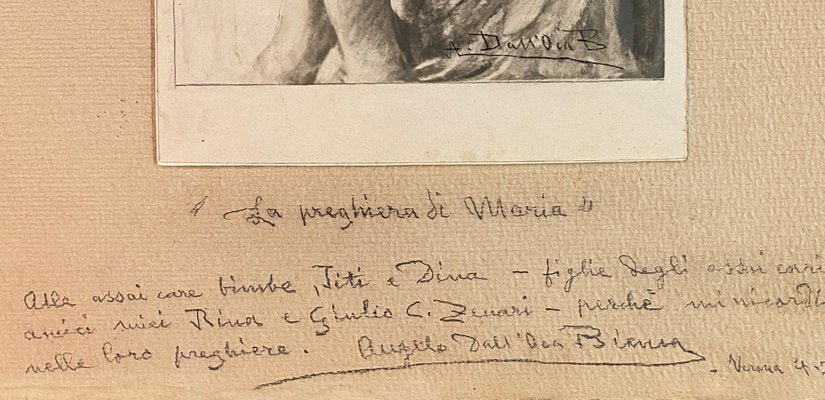 A. Dall'Oca B
"La preghiera di Maria"
Alle assai care bimbe, Titi e Dina – figlie degli assai cari
amici miei Rina e Giulio C. Zenari – perchè mi ricordi
nelle loro preghiere. Angelo Dall'Oca Bianca
- Verona